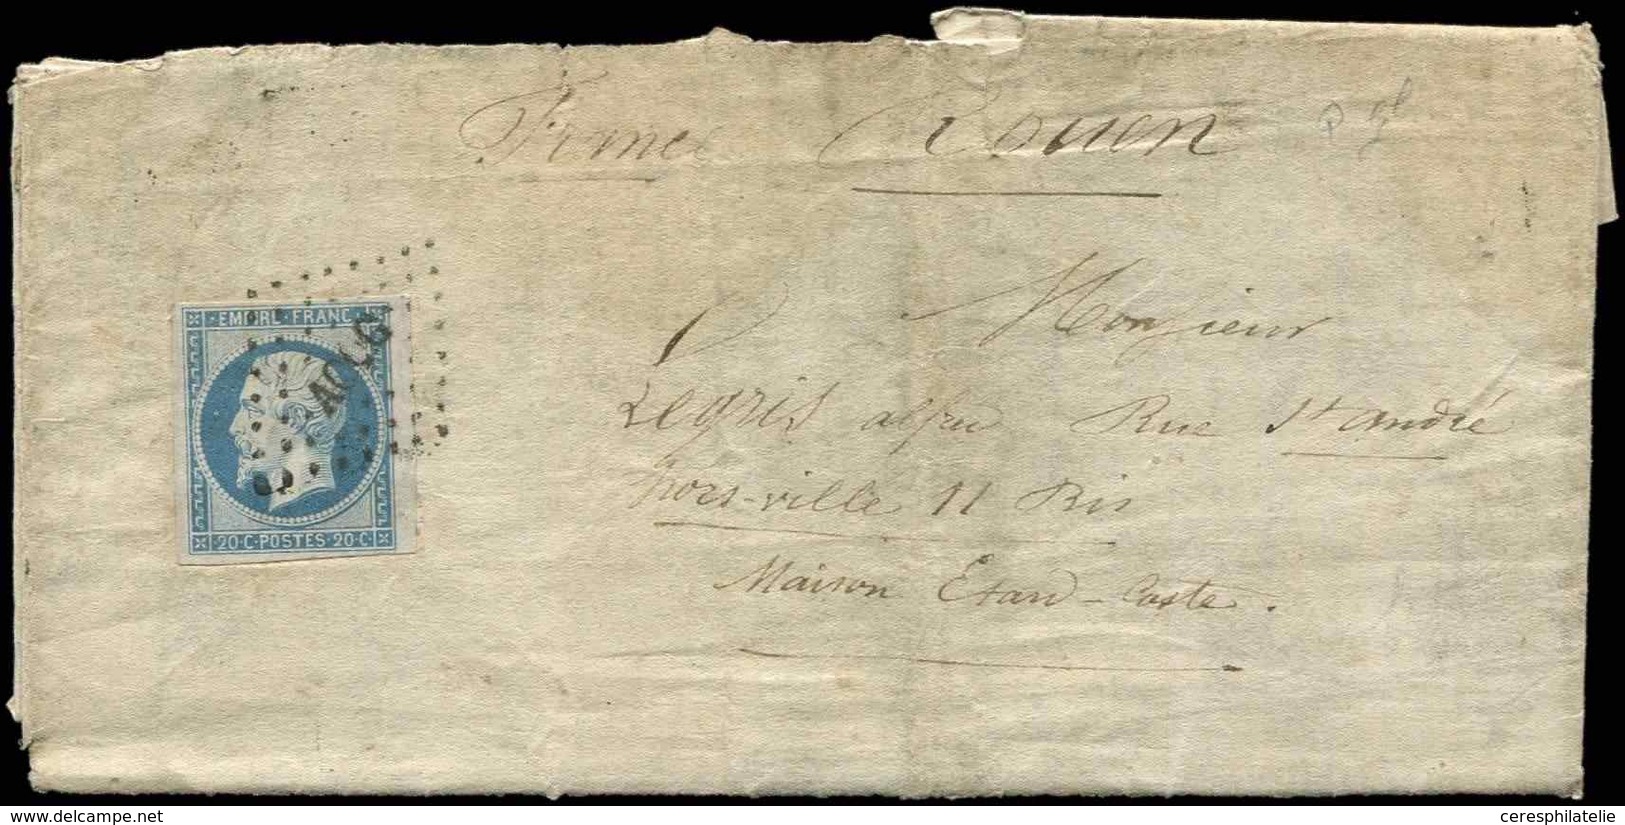 France Rouen
EMPIRE FRANC
20·C·POSTES·20·C
Monsieur
Legris Rue St André
hors-ville 11
Maison Etard - Coste.
delcampe.net
ceresphilatelie